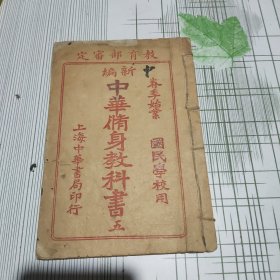 教育部審定
新編
春季始業
國民學校用
中華脩身教科書 五
上海中華書局印行